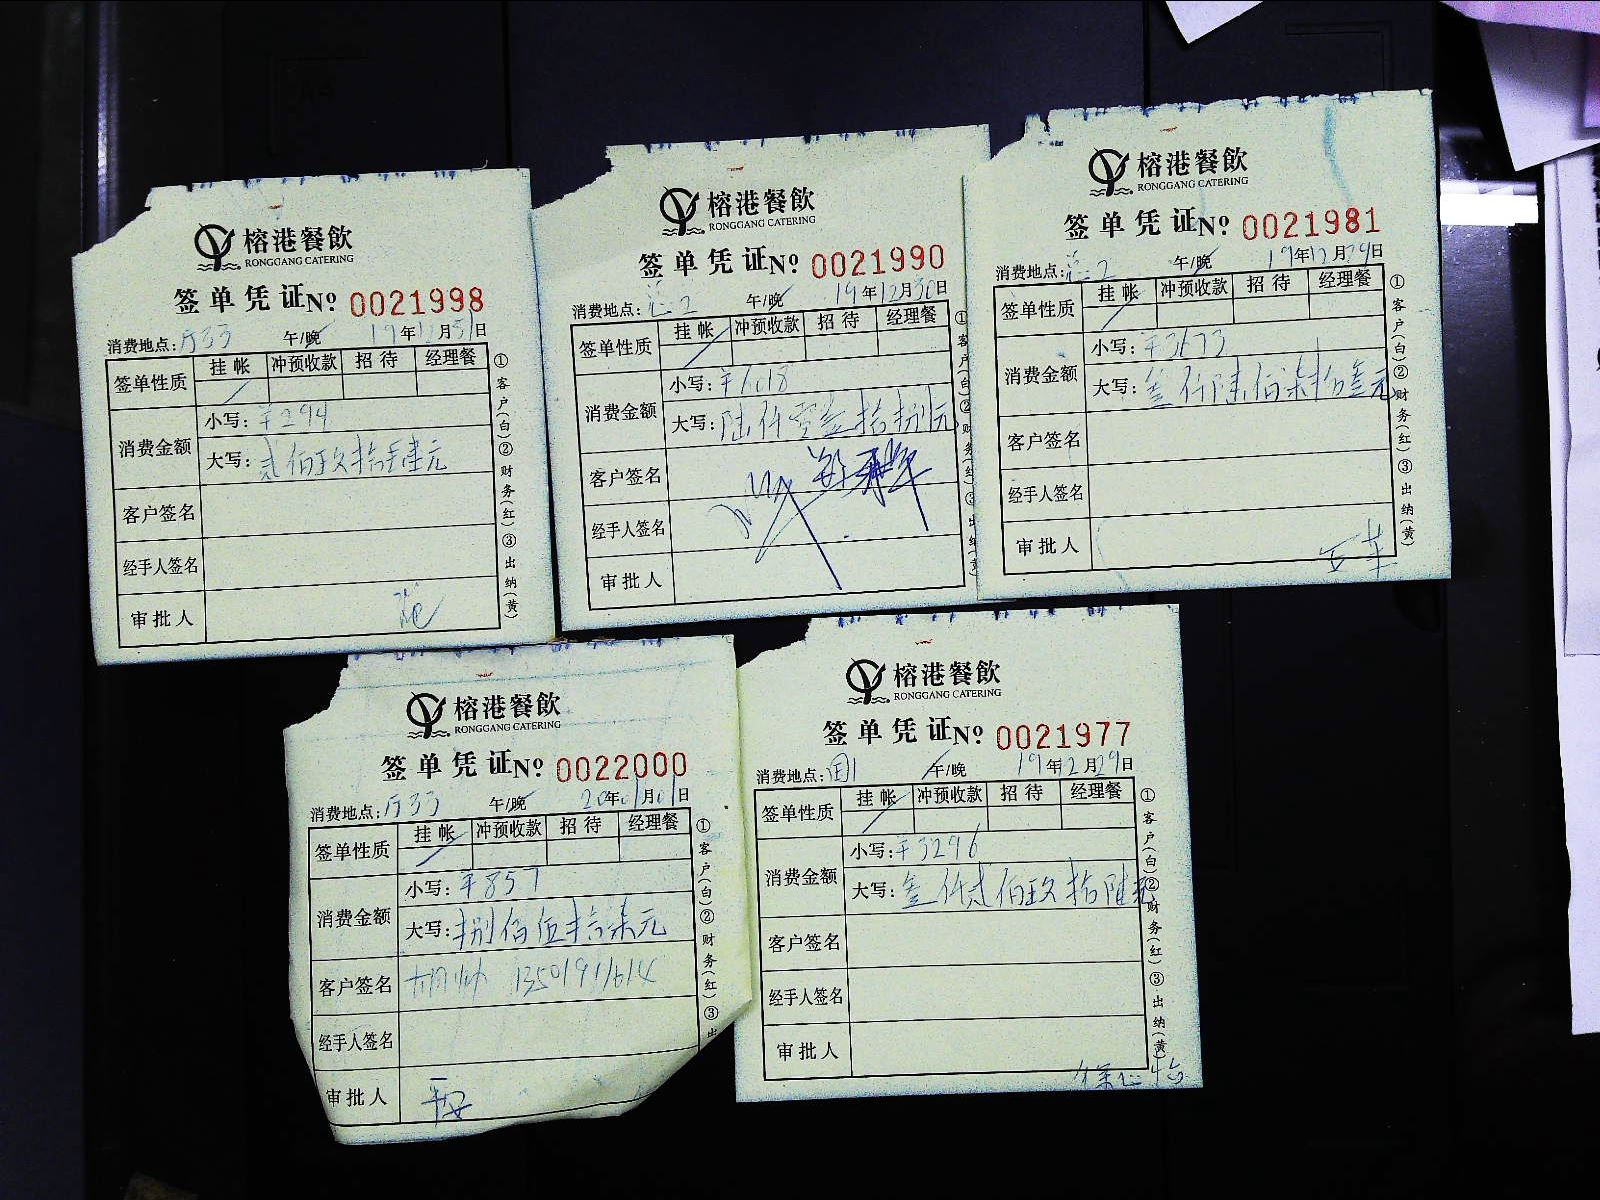 榕港餐飲
RONGGANG CATERING
签单凭证 Nº 0021998
消费地点: 厅33 午/晚 19年12月31日
签单性质 挂帐 冲预收款 招待 经理餐
消费金额
小写: ¥294
大写: 贰佰玖拾肆元
客户签名
经手人签名
审批人
①客户(白)②财务(红)③出纳(黄)
榕港餐飲
RONGGANG CATERING
签单凭证 Nº 0021990
消费地点: 总2 午/晚 19年12月30日
签单性质 挂帐 冲预收款 招待 经理餐
消费金额
小写: ¥6018
大写: 陆仟零壹拾捌元
客户签名
经手人签名
审批人
①客户(白)②财务(红)③出纳(黄
榕港餐飲
RONGGANG CATERING
签单凭证 Nº 0021981
消费地点: 总2 午/晚 19年12月29日
签单性质 挂帐 冲预收款 招待 经理餐
消费金额
小写: ¥3673
大写: 叁仟陆佰柒拾叁元
客户签名
经手人签名
审批人
①客户(白)②财务(红)③出纳(黄)
榕港餐飲
RONGGANG CATERING
签单凭证 Nº 0022000
消费地点: 厅33 午/晚 20年01月01日
签单性质 挂帐 冲预收款 招待 经理餐
消费金额
小写: ¥857
大写: 捌佰伍拾柒元
客户签名 胡帅 13501911614
经手人签名
审批人
①客户(白)②财务(红)③出
榕港餐飲
RONGGANG CATERING
签单凭证 Nº 0021977
消费地点: 午/晚 19年12月29日
签单性质 挂帐 冲预收款 招待 经理餐
消费金额
小写: ¥3296
大写: 叁仟贰佰玖拾陆元
客户签名
经手人签名
审批人
①客户(白)②财务(红)③出纳(黄)